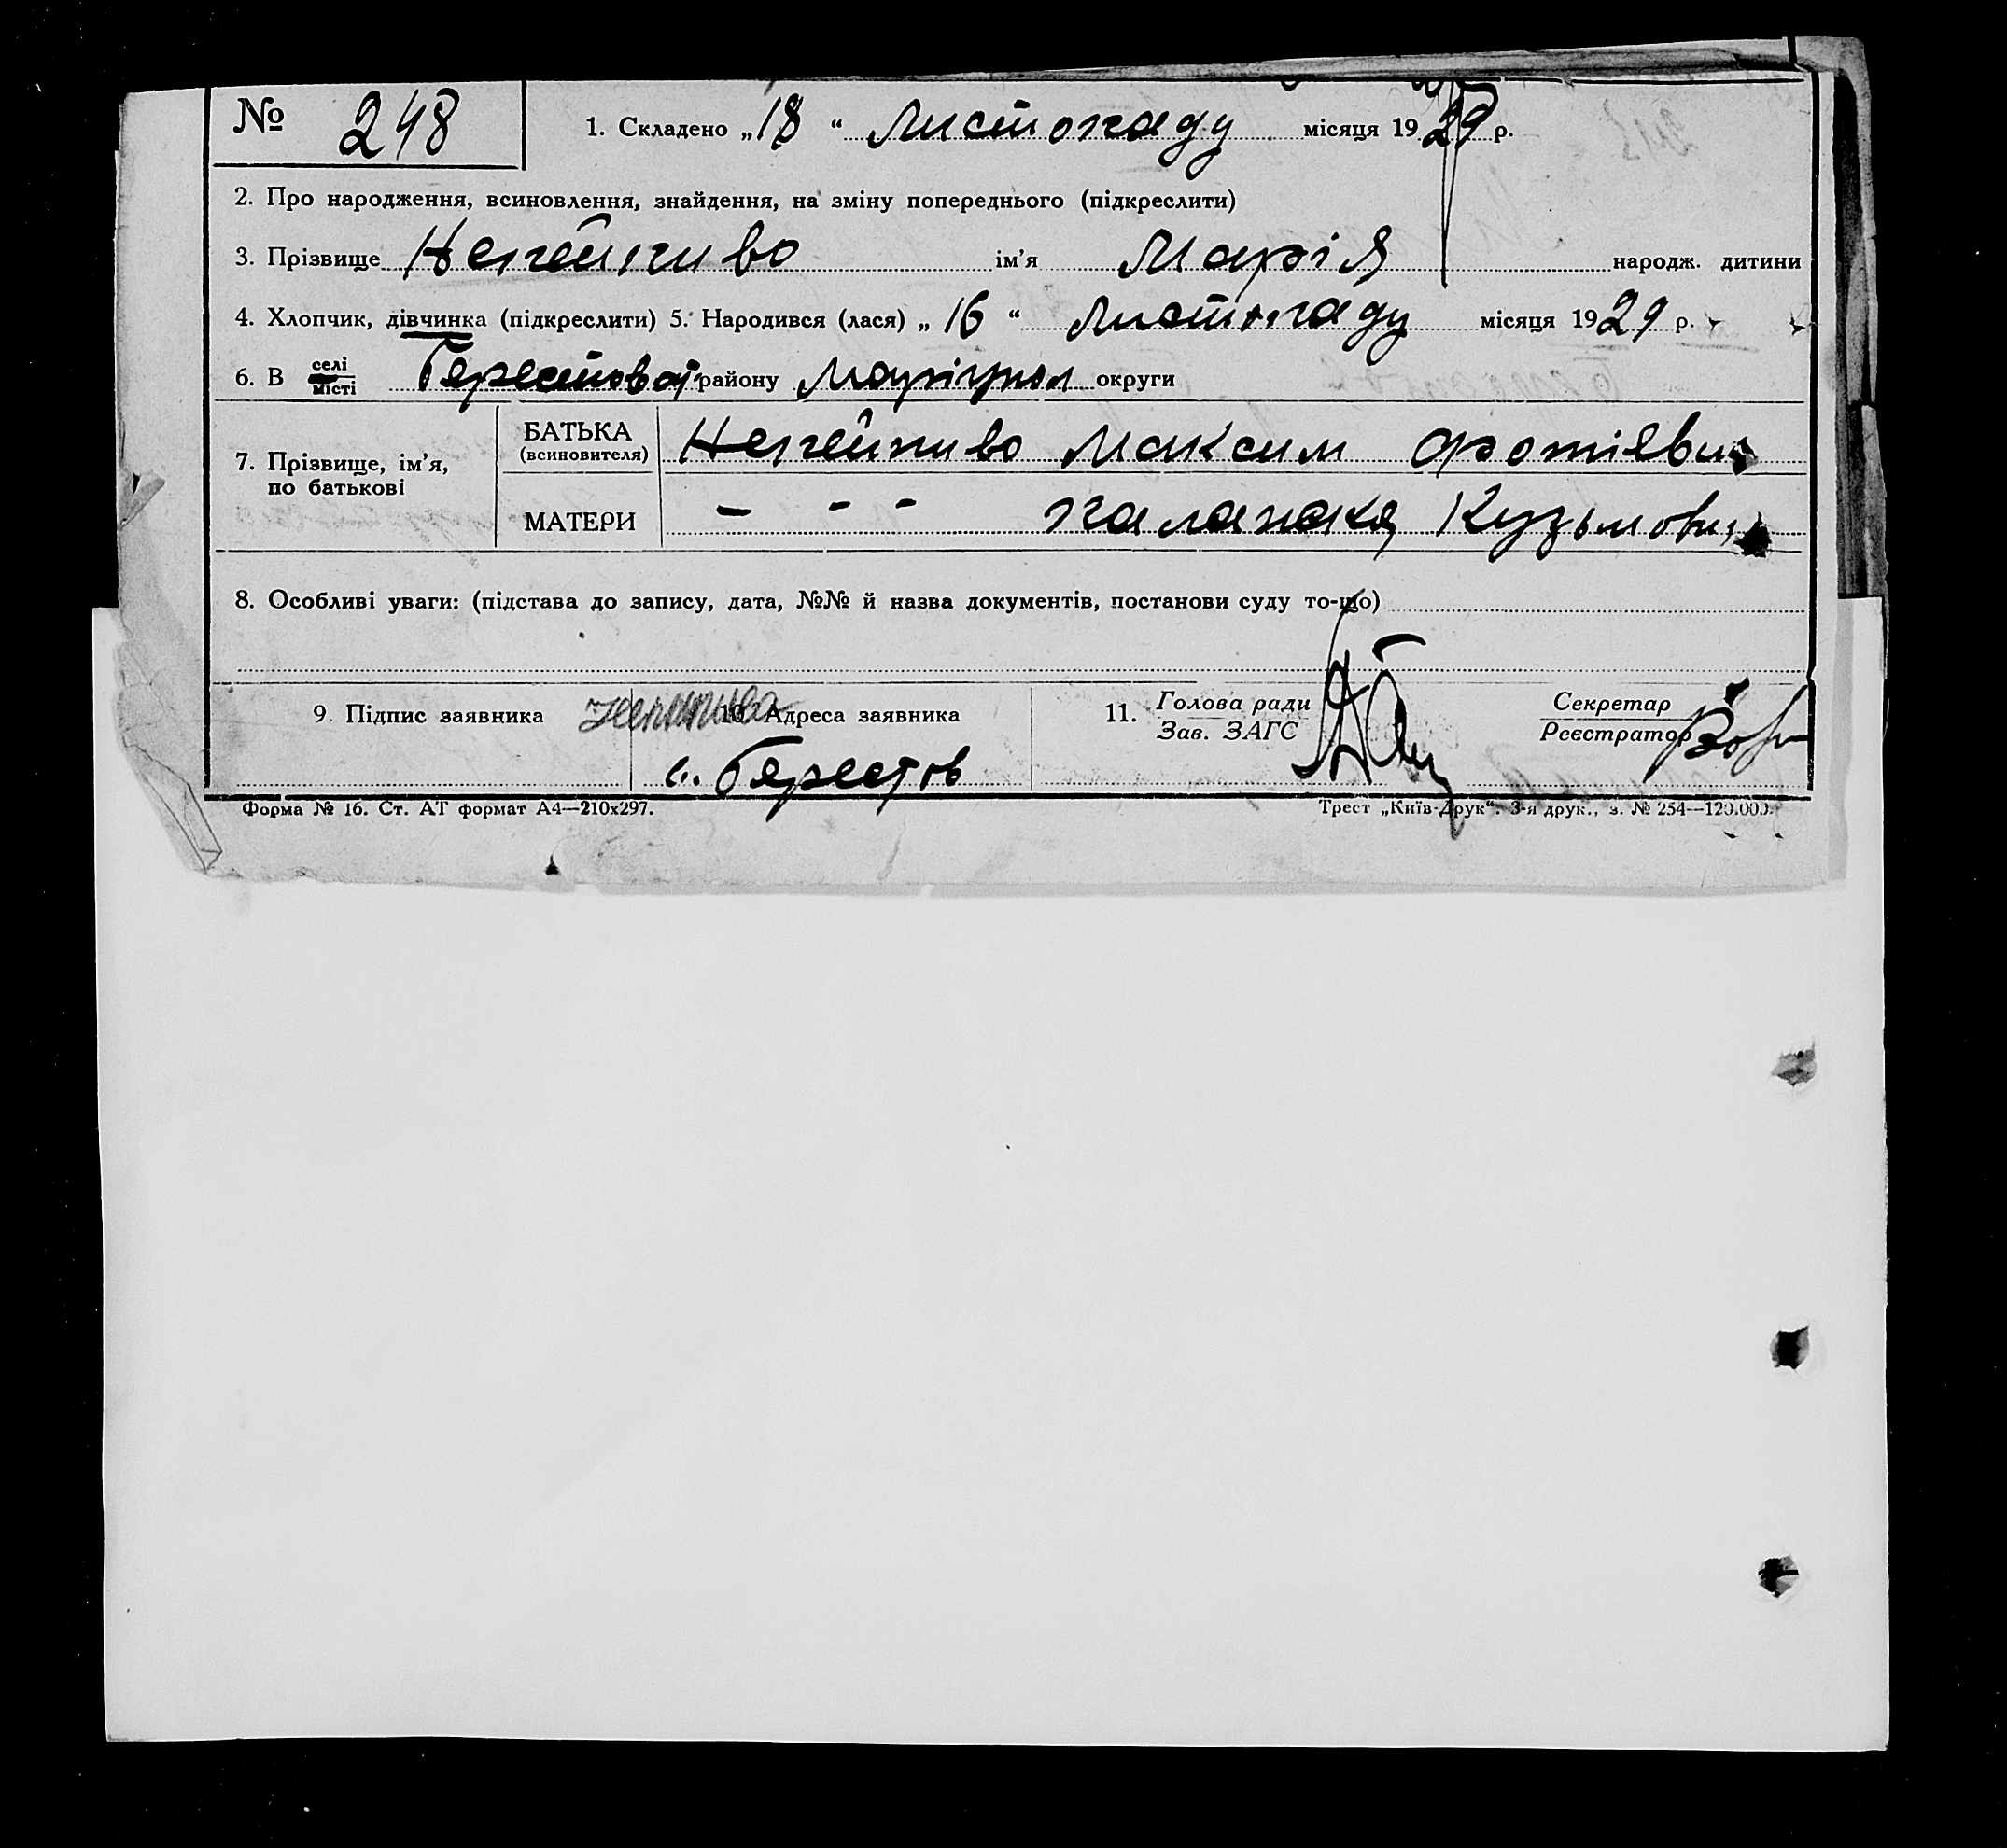 № 248
1. Складено „18“ Листопаду місяця 1929 р.
2. Про народження, всиновлення, знайдення, на зміну попереднього (підкреслити)
3. Прізвище Непейпиво ім’я Марія народж. дитини
4. Хлопчик, дівчинка (підкреслити) 5. Народився (лася) „16“ Листопаду місяця 1929 р.
6. В селі місті району Маріупол округи
7. Прізвище, ім’я, по батькові
БАТЬКА (всиновителя) Непейпиво Максим Фотіевич
МАТЕРИ - - - Палажка Кузьмовна
8. Особливі уваги: (підстава до запису, дата, №№ й назва документів, постанови суду то-що)
9. Підпис заявника 10. Адреса заявника 11. Голова ради Зав. ЗАГС Секретар Реєстратор
с. Берестов
Форма № 16. Ст. АТ формат А4—210х297. Трест „Київ-Друк“. 3-я друк., з. № 254—120.000.